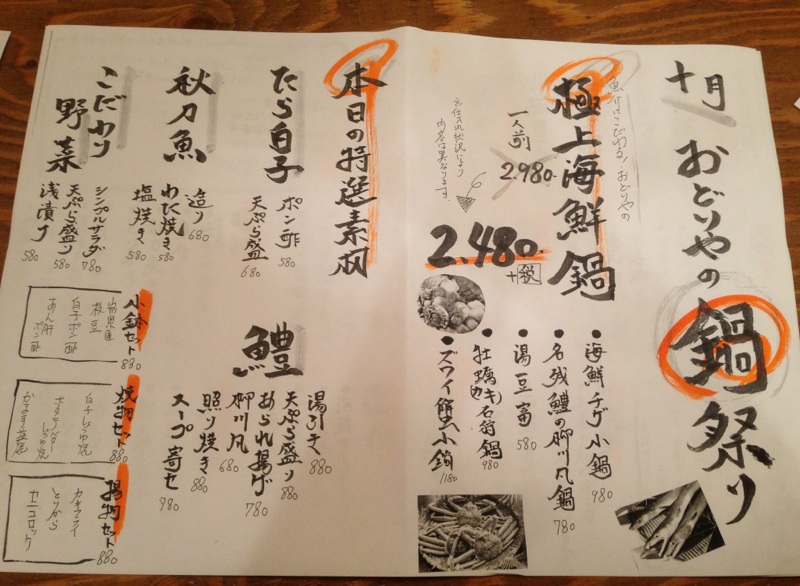 十月 おどりやの
鍋祭り
魚介はこだわる!おどりやの
極上海鮮鍋
一人前
2.980-
2.480.
+税
※仕入れ状況により
内容は異なります。
•海鮮チゲ小鍋 980
•名残鱧の柳川風鍋 780
•湯豆富 580
•牡蠣(カキ)石狩鍋 980
•ズワイ蟹小鍋 1180
本日の特選素材
たら白子
ポン酢 580
天ぷら盛 680
秋刀魚
造り 680
わた焼き 580
塩焼き 580
こだわり
野菜
シンプルサラダ 780
天ぷら盛り 580
浅漬け 580
鱧
湯引き 880
天ぷら盛り 880
あられ揚げ 780
柳川風 680
照り焼き 880
スープ寄せ 980
小鉢セット 880
枝豆
白子ポン酢
あん肝ポン酢
焼物セット 880
白子しょうゆ焼
揚物セット 880
カキフライ
とりから
カニコロッケ